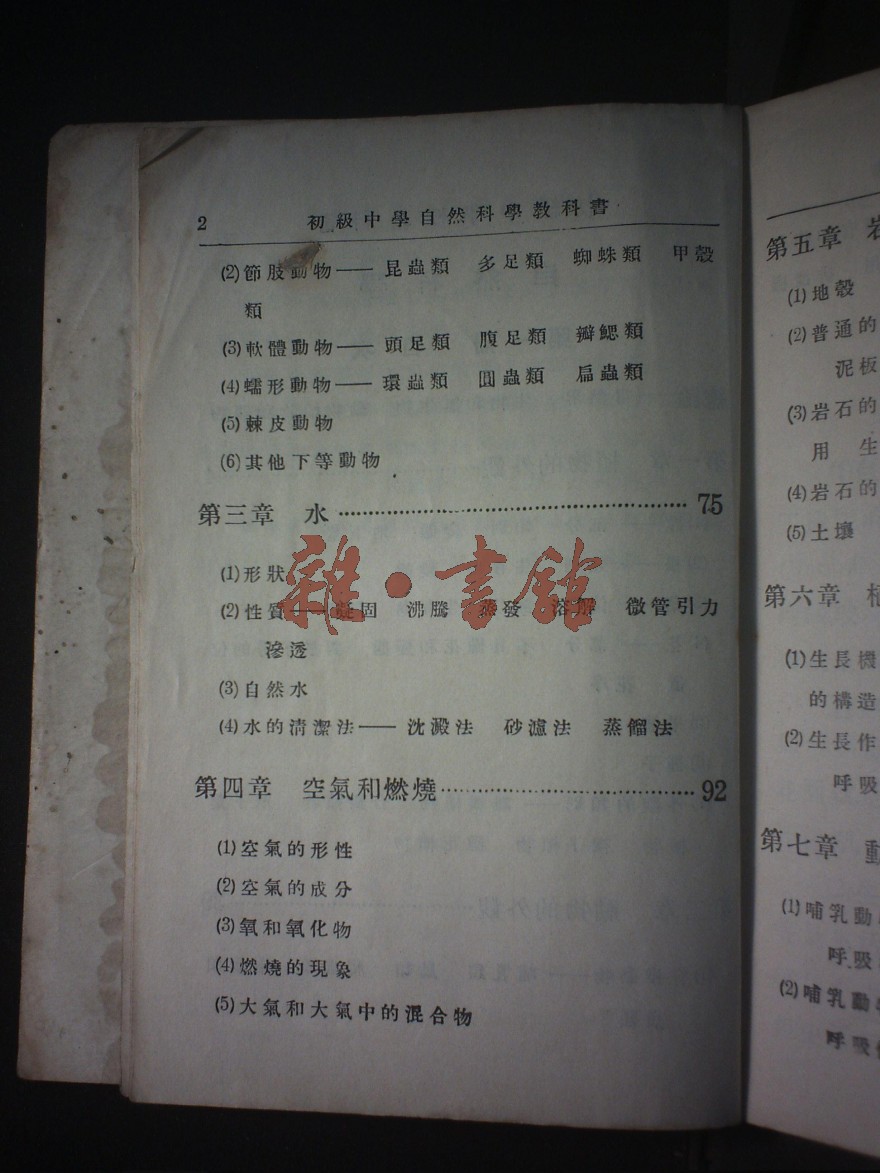 2 初級中學自然科學教科書
(2)節肢動物—— 昆蟲類 多足類 蜘蛛類 甲殼
類
(3)軟體動物—— 頭足類 腹足類 瓣鰓類
(4)蠕形動物—— 環蟲類 圓蟲類 扁蟲類
(5)棘皮動物
(6)其他下等動物
第三章 水……………………………………75
(1)形狀
(2)性質——凝固 沸騰 蒸發 溶解 微管引力
滲透
(3)自然水
(4)水的清潔法—— 沈澱法 砂濾法 蒸餾法
第四章 空氣和燃燒……………………………92
(1)空氣的形性
(2)空氣的成分
(3)氧和氧化物
(4)燃燒的現象
(5)大氣和大氣中的混合物
雜·書館
第五章 岩
(1)地殼
(2)普通的
泥板
(3)岩石的
用 生
(4)岩石的
(5)土壤
第六章
(1)生長機
的構造
(2)生長作
呼吸
第七章 動
(1)哺乳動
呼吸
(2)哺乳動
呼吸